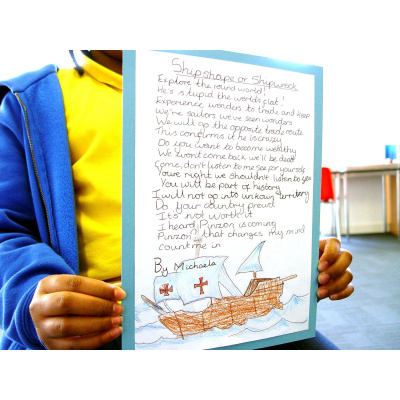 Shipshape or Shipwreck
Explore the round world!
He's stupid the worlds flat!
Experience wonders to trade and keep
We're sailors we've seen wonders
We will go the opposite trade route
This confirms it he is crazy
Do you want to become wealthy
We won't come back we'll be dead
Come, don't listen to me see for yourself
Youre right we shouldn't listen to you
You will be part of history
I will not go into unkown territory
Do your country proud
Its not worth it
I heard Pinzon is coming
Pinzon? that changes my mind
count me in
By Michaela